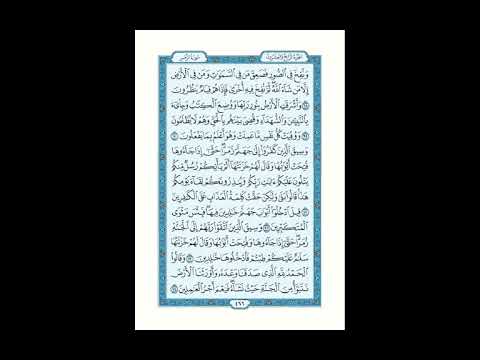 سورة الزمر
الجزء الرابع والعشرون
وَنُفِخَ فِي الصُّورِ فَصَعِقَ مَن فِي السَّمَاوَاتِ وَمَن فِي الْأَرْضِ
إِلَّا مَن شَاءَ اللَّهُ ثُمَّ نُفِخَ فِيهِ أُخْرَىٰ فَإِذَا هُمْ قِيَامٌ يَنظُرُونَ
﴿٦٨﴾ وَأَشْرَقَتِ الْأَرْضُ بِنُورِ رَبِّهَا وَوُضِعَ الْكِتَابُ وَجِيءَ
بِالنَّبِيِّينَ وَالشُّهَدَاءِ وَقُضِيَ بَيْنَهُم بِالْحَقِّ وَهُمْ لَا يُظْلَمُونَ
﴿٦٩﴾ وَوُفِّيَتْ كُلُّ نَفْسٍ مَّا عَمِلَتْ وَهُوَ أَعْلَمُ بِمَا يَفْعَلُونَ ﴿٧٠﴾
وَسِيقَ الَّذِينَ كَفَرُوا إِلَىٰ جَهَنَّمَ زُمَرًا حَتَّىٰ إِذَا جَاءُوهَا
فُتِحَتْ أَبْوَابُهَا وَقَالَ لَهُمْ خَزَنَتُهَا أَلَمْ يَأْتِكُمْ رُسُلٌ مِّنكُمْ
يَتْلُونَ عَلَيْكُمْ آيَاتِ رَبِّكُمْ وَيُنذِرُونَكُمْ لِقَاءَ يَوْمِكُمْ
هَٰذَا قَالُوا بَلَىٰ وَلَٰكِنْ حَقَّتْ كَلِمَةُ الْعَذَابِ عَلَى الْكَافِرِينَ
﴿٧١﴾ قِيلَ ادْخُلُوا أَبْوَابَ جَهَنَّمَ خَالِدِينَ فِيهَا فَبِئْسَ مَثْوَى
الْمُتَكَبِّرِينَ ﴿٧٢﴾ وَسِيقَ الَّذِينَ اتَّقَوْا رَبَّهُمْ إِلَى الْجَنَّةِ
زُمَرًا حَتَّىٰ إِذَا جَاءُوهَا وَفُتِحَتْ أَبْوَابُهَا وَقَالَ لَهُمْ خَزَنَتُهَا
سَلَامٌ عَلَيْكُمْ طِبْتُمْ فَادْخُلُوهَا خَالِدِينَ ﴿٧٣﴾ وَقَالُوا
الْحَمْدُ لِلَّهِ الَّذِي صَدَقَنَا وَعْدَهُ وَأَوْرَثَنَا الْأَرْضَ
نَتَبَوَّأُ مِنَ الْجَنَّةِ حَيْثُ نَشَاءُ فَنِعْمَ أَجْرُ الْعَامِلِينَ ﴿٧٤﴾
٤٦٦